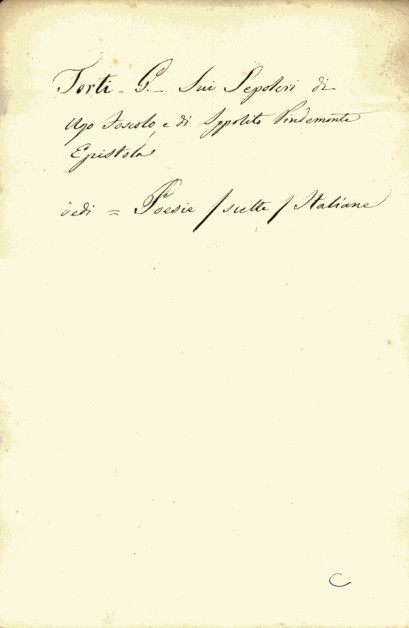 Torti - G. - Sui Sepolcri di
Ugo Foscolo, e di Ippolito Pindemonte
Epistola
vedi = Poesie / scelte / Italiane
C